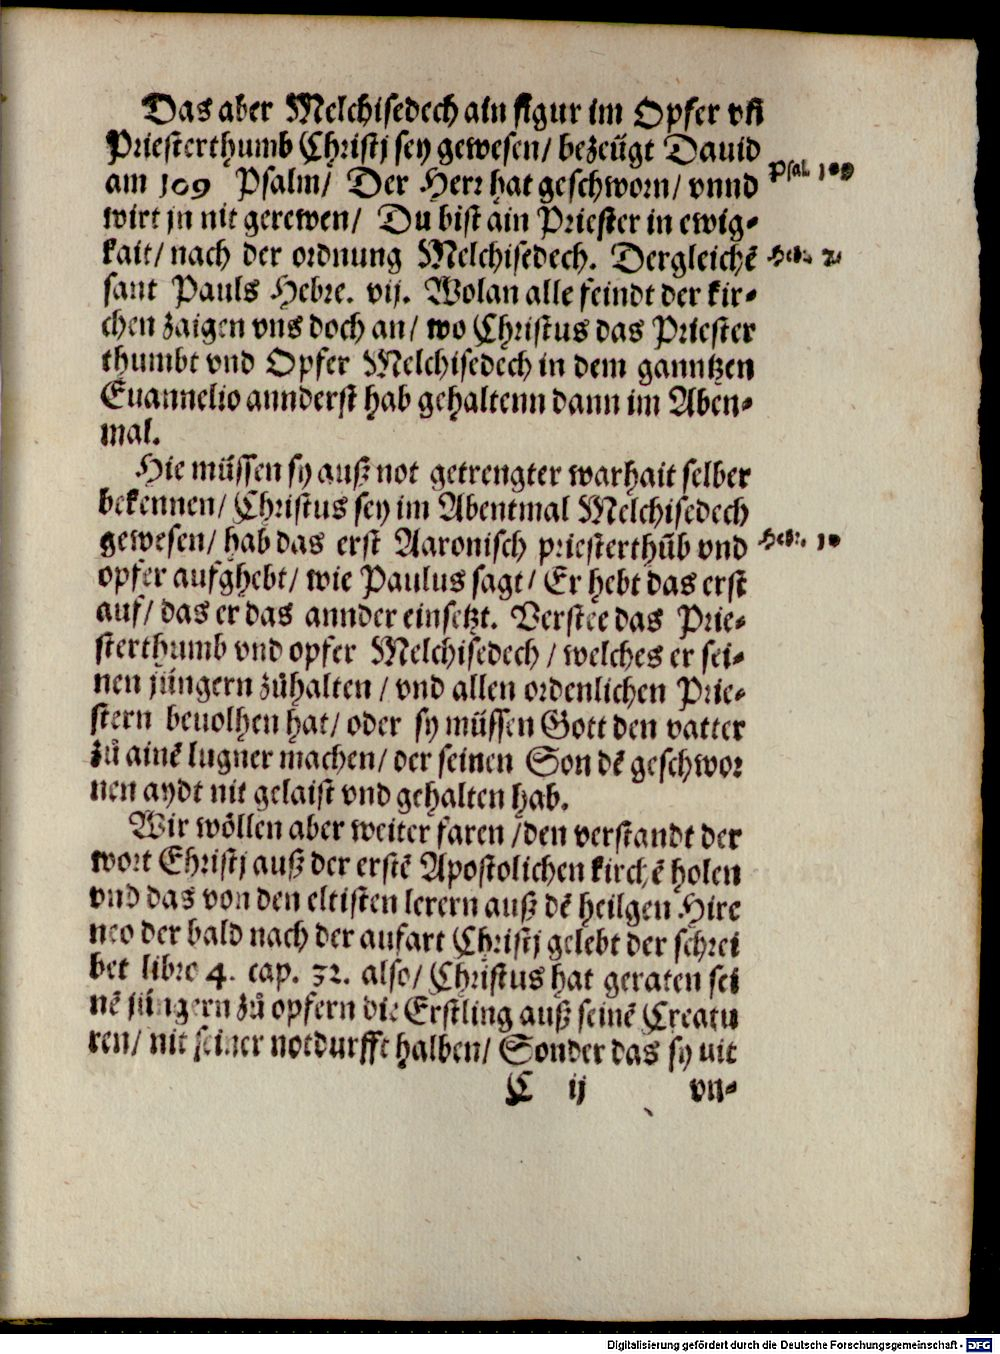 Das aber Melchisedech ain figur im Opfer vñ
Priesterthumb Christj sey gewesen/ bezeügt Dauid
am 109 Psalm/ Der Herr hat geschworn/ vnnd
Psal. 109
wirt jn nit gerewen/ Du bist ain Priester in ewig-
kait/ nach der ordnung Melchisedech. Dergleichē
Heb. 7.
sant Pauls Hebre. vij. Wolan alle feindt der kir-
chen zaigen vns doch an/ wo Christus das Priester
thumbt vnd Opfer Melchisedech in dem ganntzen
Euannelio annderst hab gehaltenn dann im Aben-
mal.
Hie müssen sy auß not getrengter warhait selber
bekennen/ Christus sey im Abentmal Melchisedech
gewesen/ hab das erst Aaronisch priesterthūb vnd
Heb. 10
opfer aufghebt/ wie Paulus sagt/ Er hebt das erst
auf/ das er das annder einsetzt. Verstee das Prie-
sterthumb vnd opfer Melchisedech/ welches er sei-
nen jüngern zůhalten/ vnd allen ordenlichen Prie-
stern beuolhen hat/ oder sy müssen Gott den vatter
zů ainē lugner machen/ der seinen Son dē geschwor
nen aydt nit gelaist vnd gehalten hab.
Wir wöllen aber weiter faren/ den verstandt der
wort Christj auß der erstē Apostolichen kirchē holen
vnd das von den eltisten lerern auß dē heilgen Hire
neo der bald nach der aufart Christj gelebt der schrei
bet libro 4. cap. 32. also/ Christus hat geraten sei
nē jüngern zů opfern die Erstling auß seinē Creatu
ren/ nit seiner notdurfft halben/ Sonder das sy nit
C ij
vn-
Digitalisierung gefördert durch die Deutsche Forschungsgemeinschaft - DFG